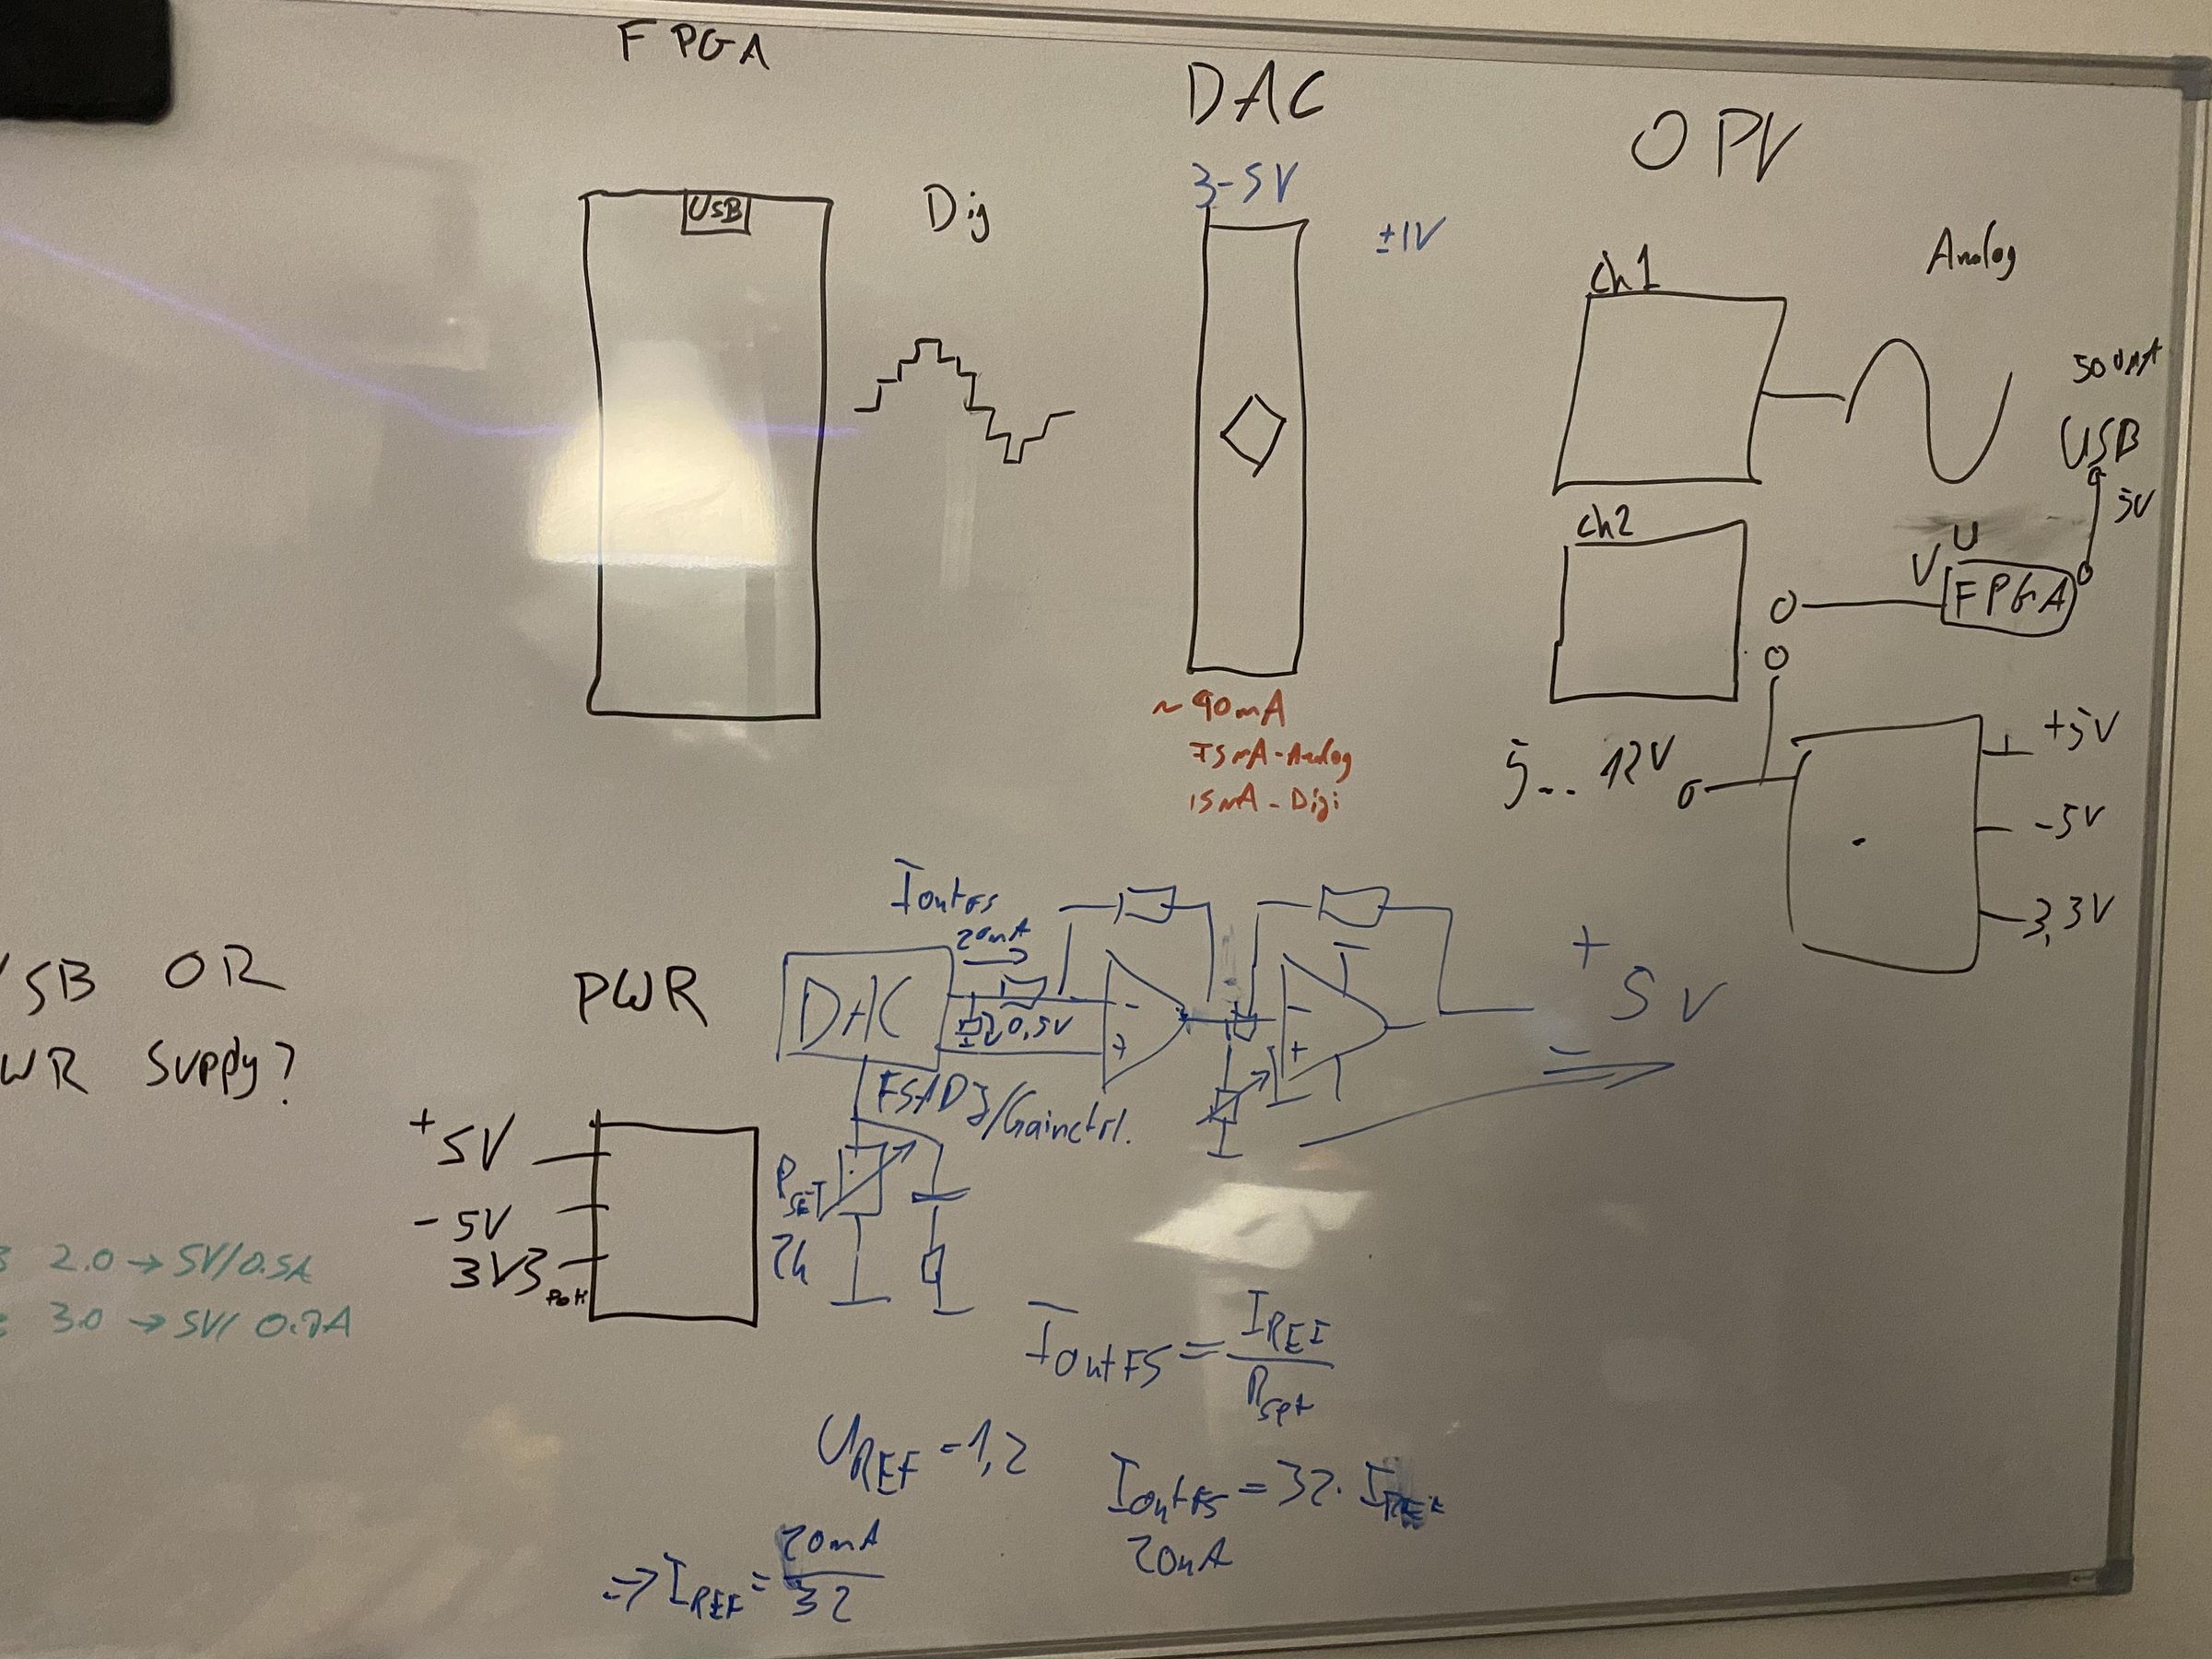 FPGA
DAC
OPV
USB
Dig
3-5V
±1V
ch1
Analog
500mA
USB
5V
ch2
U
V
FPGA
~90mA
75mA-Analog
15mA-Digi
5... 12V
+5V
-5V
3,3V
IoutFS
20mA
DAC
0,5V
-
+
-
+
+
5V
-
FSADJ/Gainctrl.
SB OR
WR Supply?
PWR
+5V
-5V
3V3
2.0 → 5V/0.5A
3.0 → 5V/
RSET
2k
IoutFS = IREF / Rset
UREF = 1,2
IoutFS = 32 · IREF
20mA
=> IREF = 20mA / 32